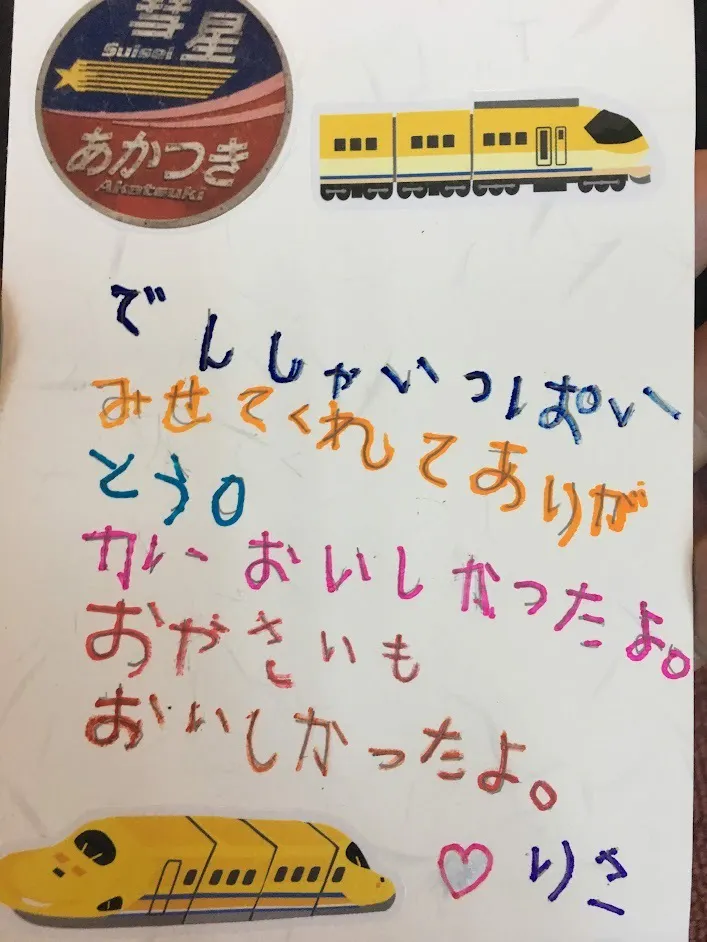 彗星
Suisei
あかつき
Akatsuki
でんしゃいっぱい
みせてくれてありが
とう。
かいおいしかったよ。
おやさいも
おいしかったよ。
♡りさ